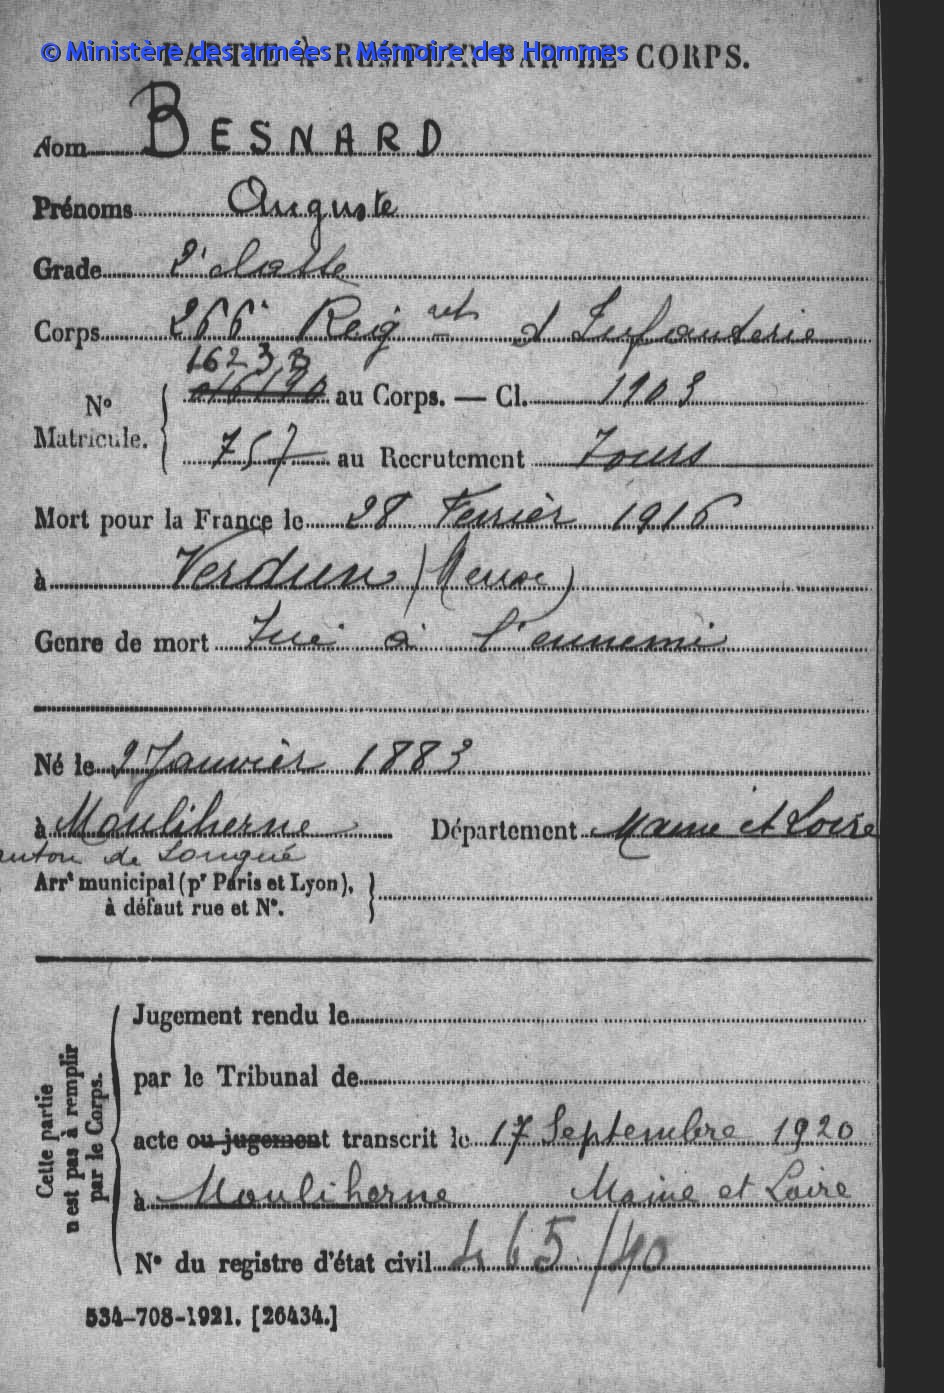 © Ministère des armées - Mémoire des Hommes
PARTIE À REMPLIR PAR LE CORPS.
Nom BESNARD
Prénoms Auguste
Grade 2e classe
Corps 266e Reigmet d Infanterie
16233
Nº Matricule. 016190 au Corps. — Cl. 1903
757 au Recrutement Tours
Mort pour la France le 28 Fevrièr 1916
à Verdun (Meuse)
Genre de mort Tué à l'ennemi
Né le 2 Janvièr 1883
à Mouliherne Département Maine et Loire
anton de Longué
Arrt municipal (pr Paris et Lyon), à défaut rue et Nº.
Cette partie n'est pas à remplir par le Corps.
Jugement rendu le
par le Tribunal de
acte ou jugement transcrit le 17 Septembre 1920
à Mouliherne Maine et Loire
Nº du registre d'état civil 465/40
534-708-1921. [26434.]